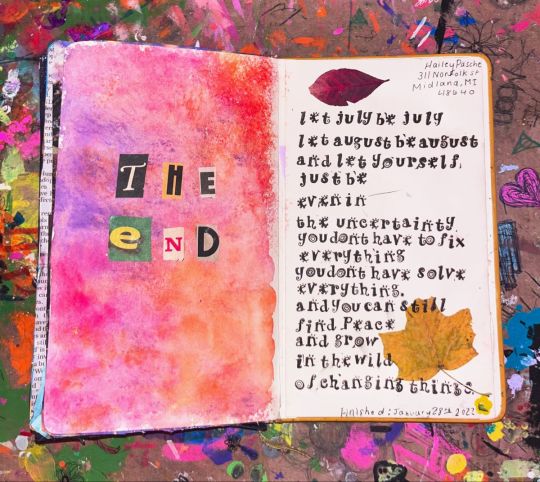 THE
eND
Hailey Pasche
311 Norfolk st
Midland, MI
48640
let july be july
let august be august
and let yourself
just be
even in
the uncertainty.
you dont have to fix
everything
you dont have solve
everything.
and you can still
find Peace
and grow
in the wild
of changing things.
finished: January 28th 2022